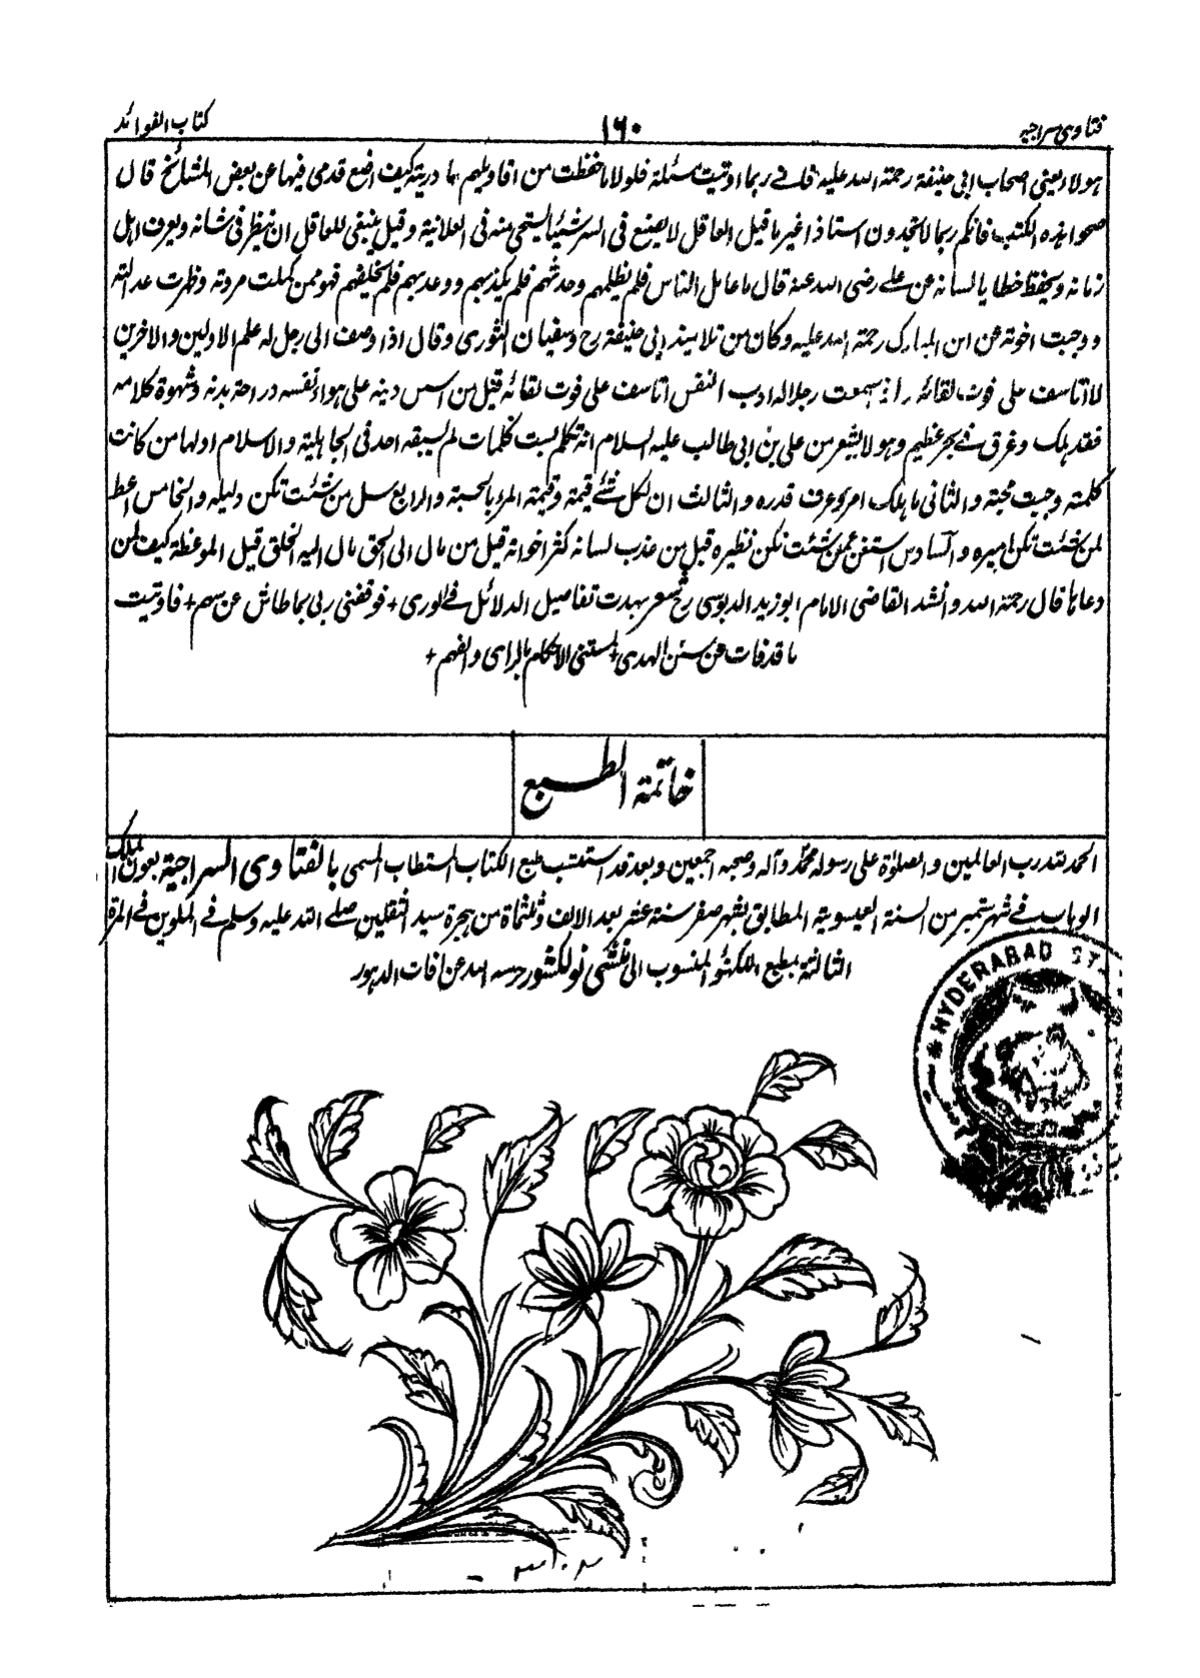 فتاوى سراجيه
١٦٠
كتاب الفوائد
هولاء يعنى اصحاب ابى حنيفة رحمة الله عليه فانى ربما اوتيت مسئلة فلولا ما حفظت من اقاويلهم ما دريت كيف اضع قدمى فيها عن بعض المشائخ قال
صححوا هذه الكتب فانكم ربما لا تجدون استاذا غيرها قيل العاقل لا يصنع فى السر شيئا يستحيى منه فى العلانية وقيل ينبغى للعاقل ان ينظر فى شانه ويعرف اهل
زمانه ويحفظ خطايا لسانه عن على رضى الله عنه قال ما عامل الناس فلم يظلمهم وحدثهم فلم يكذبهم ووعدهم فلم يخلفهم فهو ممن كملت مروته وظهرت عدالته
ووجبت اخوته عن ابن المبارك رحمة الله عليه وكان من تلاميذ ابى حنيفة رح وسفيان الثورى وقال اذا وصف الى رجل له علم الاولين والاخرين
لا اتاسف على فوت لقائه واذا سمعت رجلا له ادب النفس اتاسف على فوت لقائه قيل من اسس دينه على هواء نفسه وراحة بدنه وشهوة كلامه
فقد هلك وغرق فى بحر عظيم وهو لا يشعر من على بن ابى طالب عليه السلام انه تكلم بست كلمات لم يسبقه احد فى الجاهلية والاسلام اولها من كانت
كلمته وجبت محبته والثانى ما هلك امرء عرف قدره والثالث ان لكل شئ قيمة وقيمة المرء والرابع سل من شئت تكن ذليله والخامس اعط
لمن شئت تكن اميره والسادس استغن عمن شئت تكن نظيره قيل من عذب لسانه كثر اخوانه قيل من مال الى الحق مال اليه الخلق قيل الموعظة كهف لمن
دعاها قال رحمة الله وانشد القاضى الامام ابو زيد الدبوسى رح شعر تفاصيل الدلائل فى الورى + فوفقنى ربى بما طاش عن سهم + فاوتيت
ما قد فات عن سنن الهدى + الاحكام بالراى والفهم +
خاتمة الطبع
الحمد لله رب العالمين والصلوة على رسوله محمد وآله وصحبه اجمعين وبعد قد استتب طبع الكتاب المستطاب المسمى بالفتاوى السراجية بعون الملك
الوهاب فى شهر ستمبر من السنة العيسوية المطابق بشهر صفر سنة عشر بعد الالف وثلثمأة من هجرة سيد الثقلين صلى الله عليه وسلم فى الملوين فى المرة
الثالثة بمطبع اللكهنؤ المنسوب الى منشى نولكشور حرسه الله عن افات الدهور
HYDERABAD ST